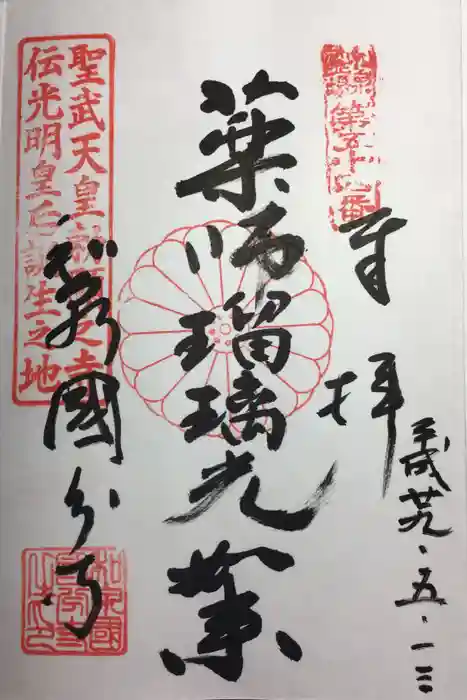 第五十
奉拝
平成廿九・五・一三
薬師瑠璃光業
聖武天皇勅願之寺
伝光明皇后誕生之地
國分寺